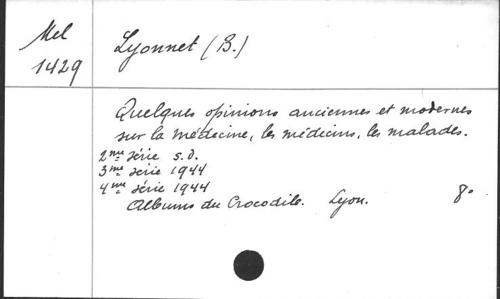 Mel
1429
Lyonnet (B.)
Quelques opinions anciennes et modernes
sur la médecine, les médecins, les malades.
2me série s.d.
3me série 1944
4me série 1944
Albums du Crocodile. Lyon. 8o